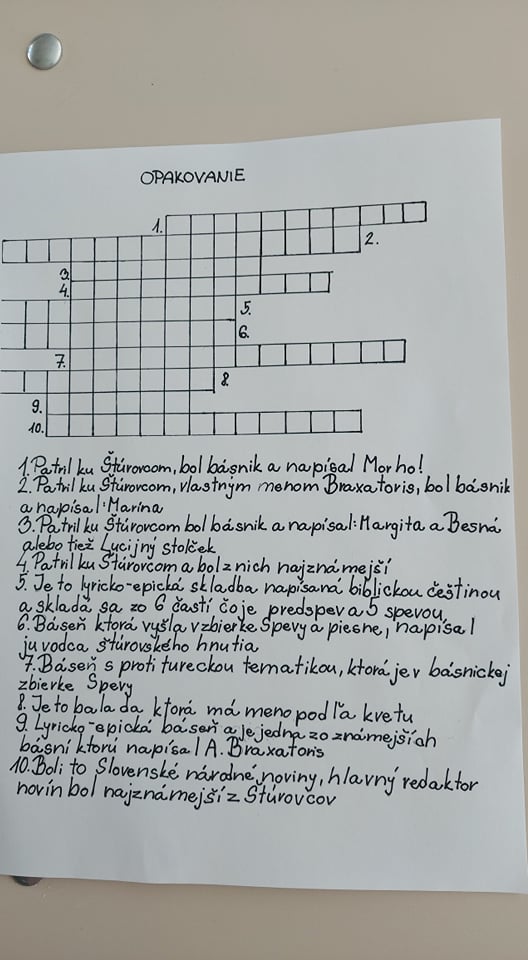 OPAKOVANIE
1.
2.
3.
4.
5.
6.
7.
8
9.
10.
1. Patril ku Štúrovcom, bol básnik a napísal Mor ho!
2. Patril ku Štúrovcom, vlastným menom Braxatoris, bol básnik
a napísal: Marína
3. Patril ku Štúrovcom bol básnik a napísal: Margita a Besná
alebo tiež Lucijný stolček
4. Patril ku Štúrovcom a bol z nich najznámejší
5. Je to lyricko-epická skladba napísaná biblickou češtinou
a skladá sa zo 6 častí čo je predspev a 5 spevou,
6. Báseň ktorá vyšla v zbierke Spevy a piesne, napísal
ju vodca štúrovského hnutia
7. Báseň s proti tureckou tematikou, ktorá je v básnickej
zbierke Spevy
8. Je to balada ktorá má meno podľa kvetu
9. Lyricko-epická báseň a je jedna zo známejších
básní ktorú napísal A. Braxatoris
10. Boli to Slovenské národné noviny, hlavný redaktor
novín bol najznámejší z Štúrovcov